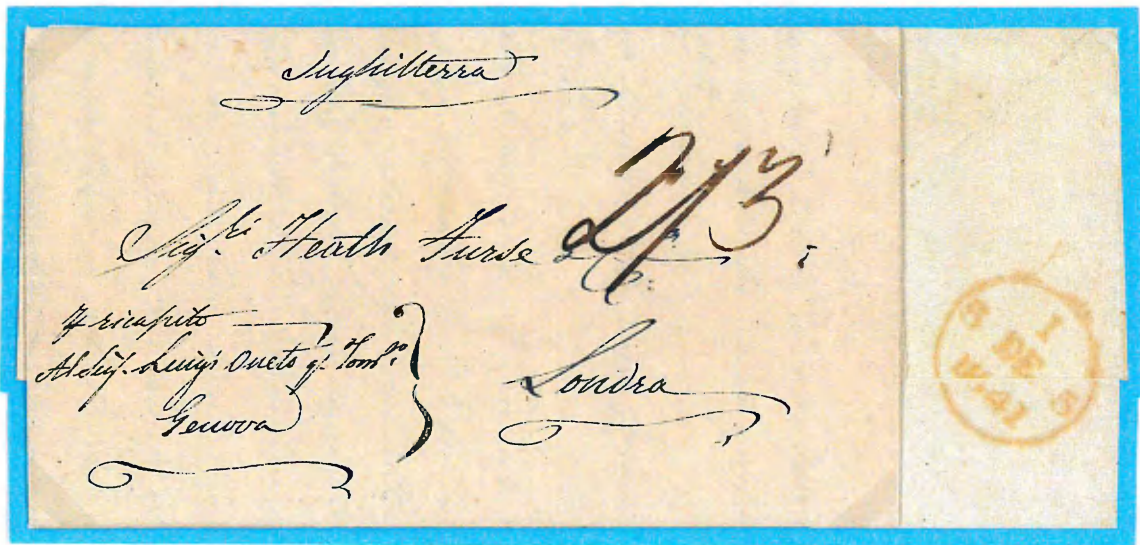 Inghilterra
2/3
Sig.ri Heath Furse & Co.
ricapito
Al Sig.r Luigi Oneto q. Tom.so
Genova
Londra
1
DE
1841